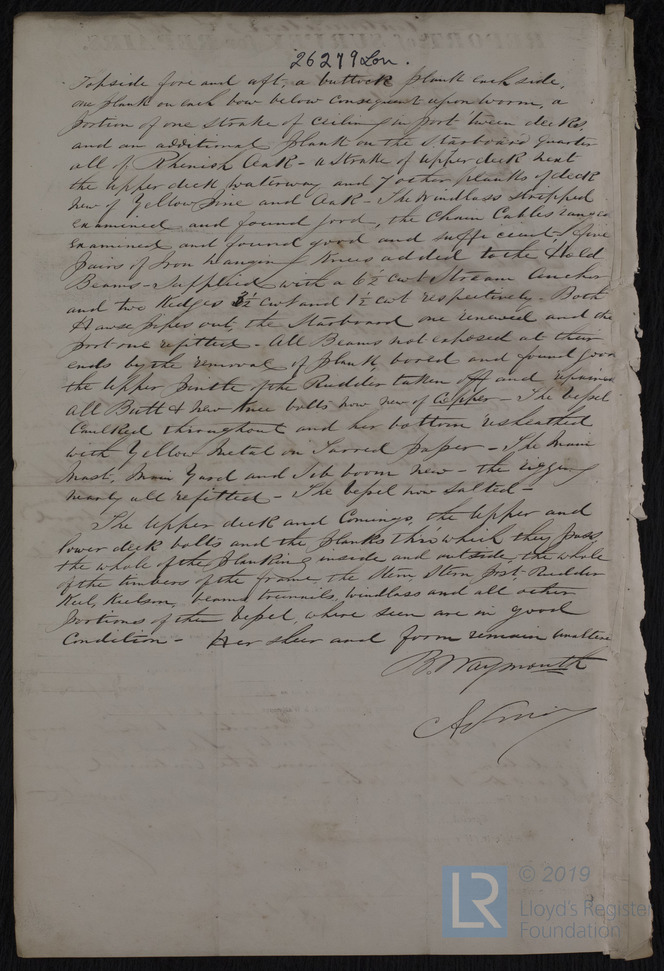 26279 Lon.
Topside fore and aft, a buttock plank each side,
one plank on each bow below consequent upon worm, a
portion of one strake of ceiling in port 'tween decks,
and an additional plank on the starboard quarter
all of Rhenish Oak - a strake of upper deck next
the upper deck waterway and 7 other planks of deck
new of Yellow Pine and Oak - The Windlass stripped
examined and found good, the Chain Cables ranged
examined and found good and sufficient, five
pairs of Iron hanging Knees added to the Hold
Beams - Supplied with a 6½ cwt Stream Anchor
and two Kedges 3½ cwt and 1½ cwt respectively - Both
Hawse pipes out, the Starboard one renewed and the
port one refitted - All Beams not exposed at their
ends by the removal of plank, bored and found good
the Upper Pintle of the Rudder taken off and repaired
all Butt & new Knee bolts now new of Copper - The Vessel
Caulked throughout and her bottom resheathed
with Yellow Metal on Tarred paper - The Main
Mast, Main Yard and Jib boom new - the rigging
nearly all refitted - The Vessel now salted -
The Upper deck and Comings, the Upper and
lower deck bolts and the planks thro which they pass,
the whole of the planking inside and outside, the whole
of the timbers of the frame, the Stem, Stern post Rudder
Keel, Keelson, beams, treenails, windlass and all other
portions of the Vessel, where seen are in good
Condition - Her sheer and form remain unaltered
B. Waymouth
© 2019
LR
Lloyd's Register
Foundation